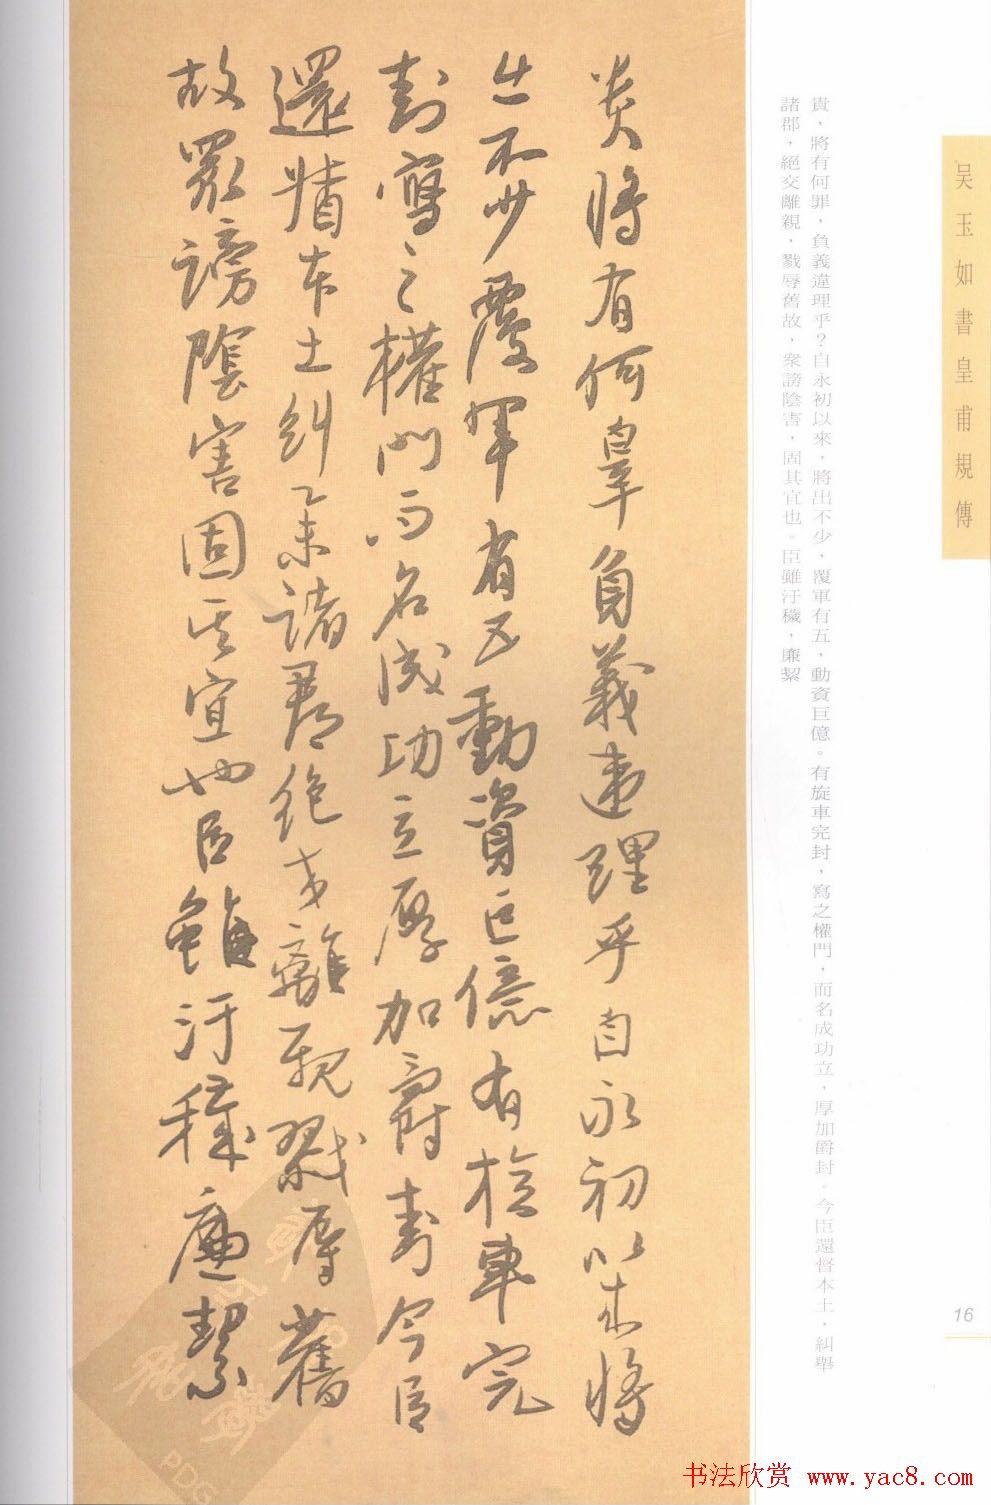 吴玉如書皇甫規傳
貴，將有何罪，負義違理乎？自永初以來，將出不少，覆軍有五，動資巨億。有旋車完封，寫之權門，而名成功立，厚加爵封。今臣還督本土，糾舉
諸郡，絕交離親，戮辱舊故，衆謗陰害，固其宜也。臣雖汙穢，廉絜
貴將有何辠負義違理乎自永初以來將
出不少覆軍有五動資巨億有旋車完
封寫之權門而名成功立厚加爵封今臣
還督本土糾舉諸郡絕交離親戮辱舊
故眾謗陰害固其宜也臣雖汙穢廉絜
16
书法欣赏 www.yac8.com
PDG